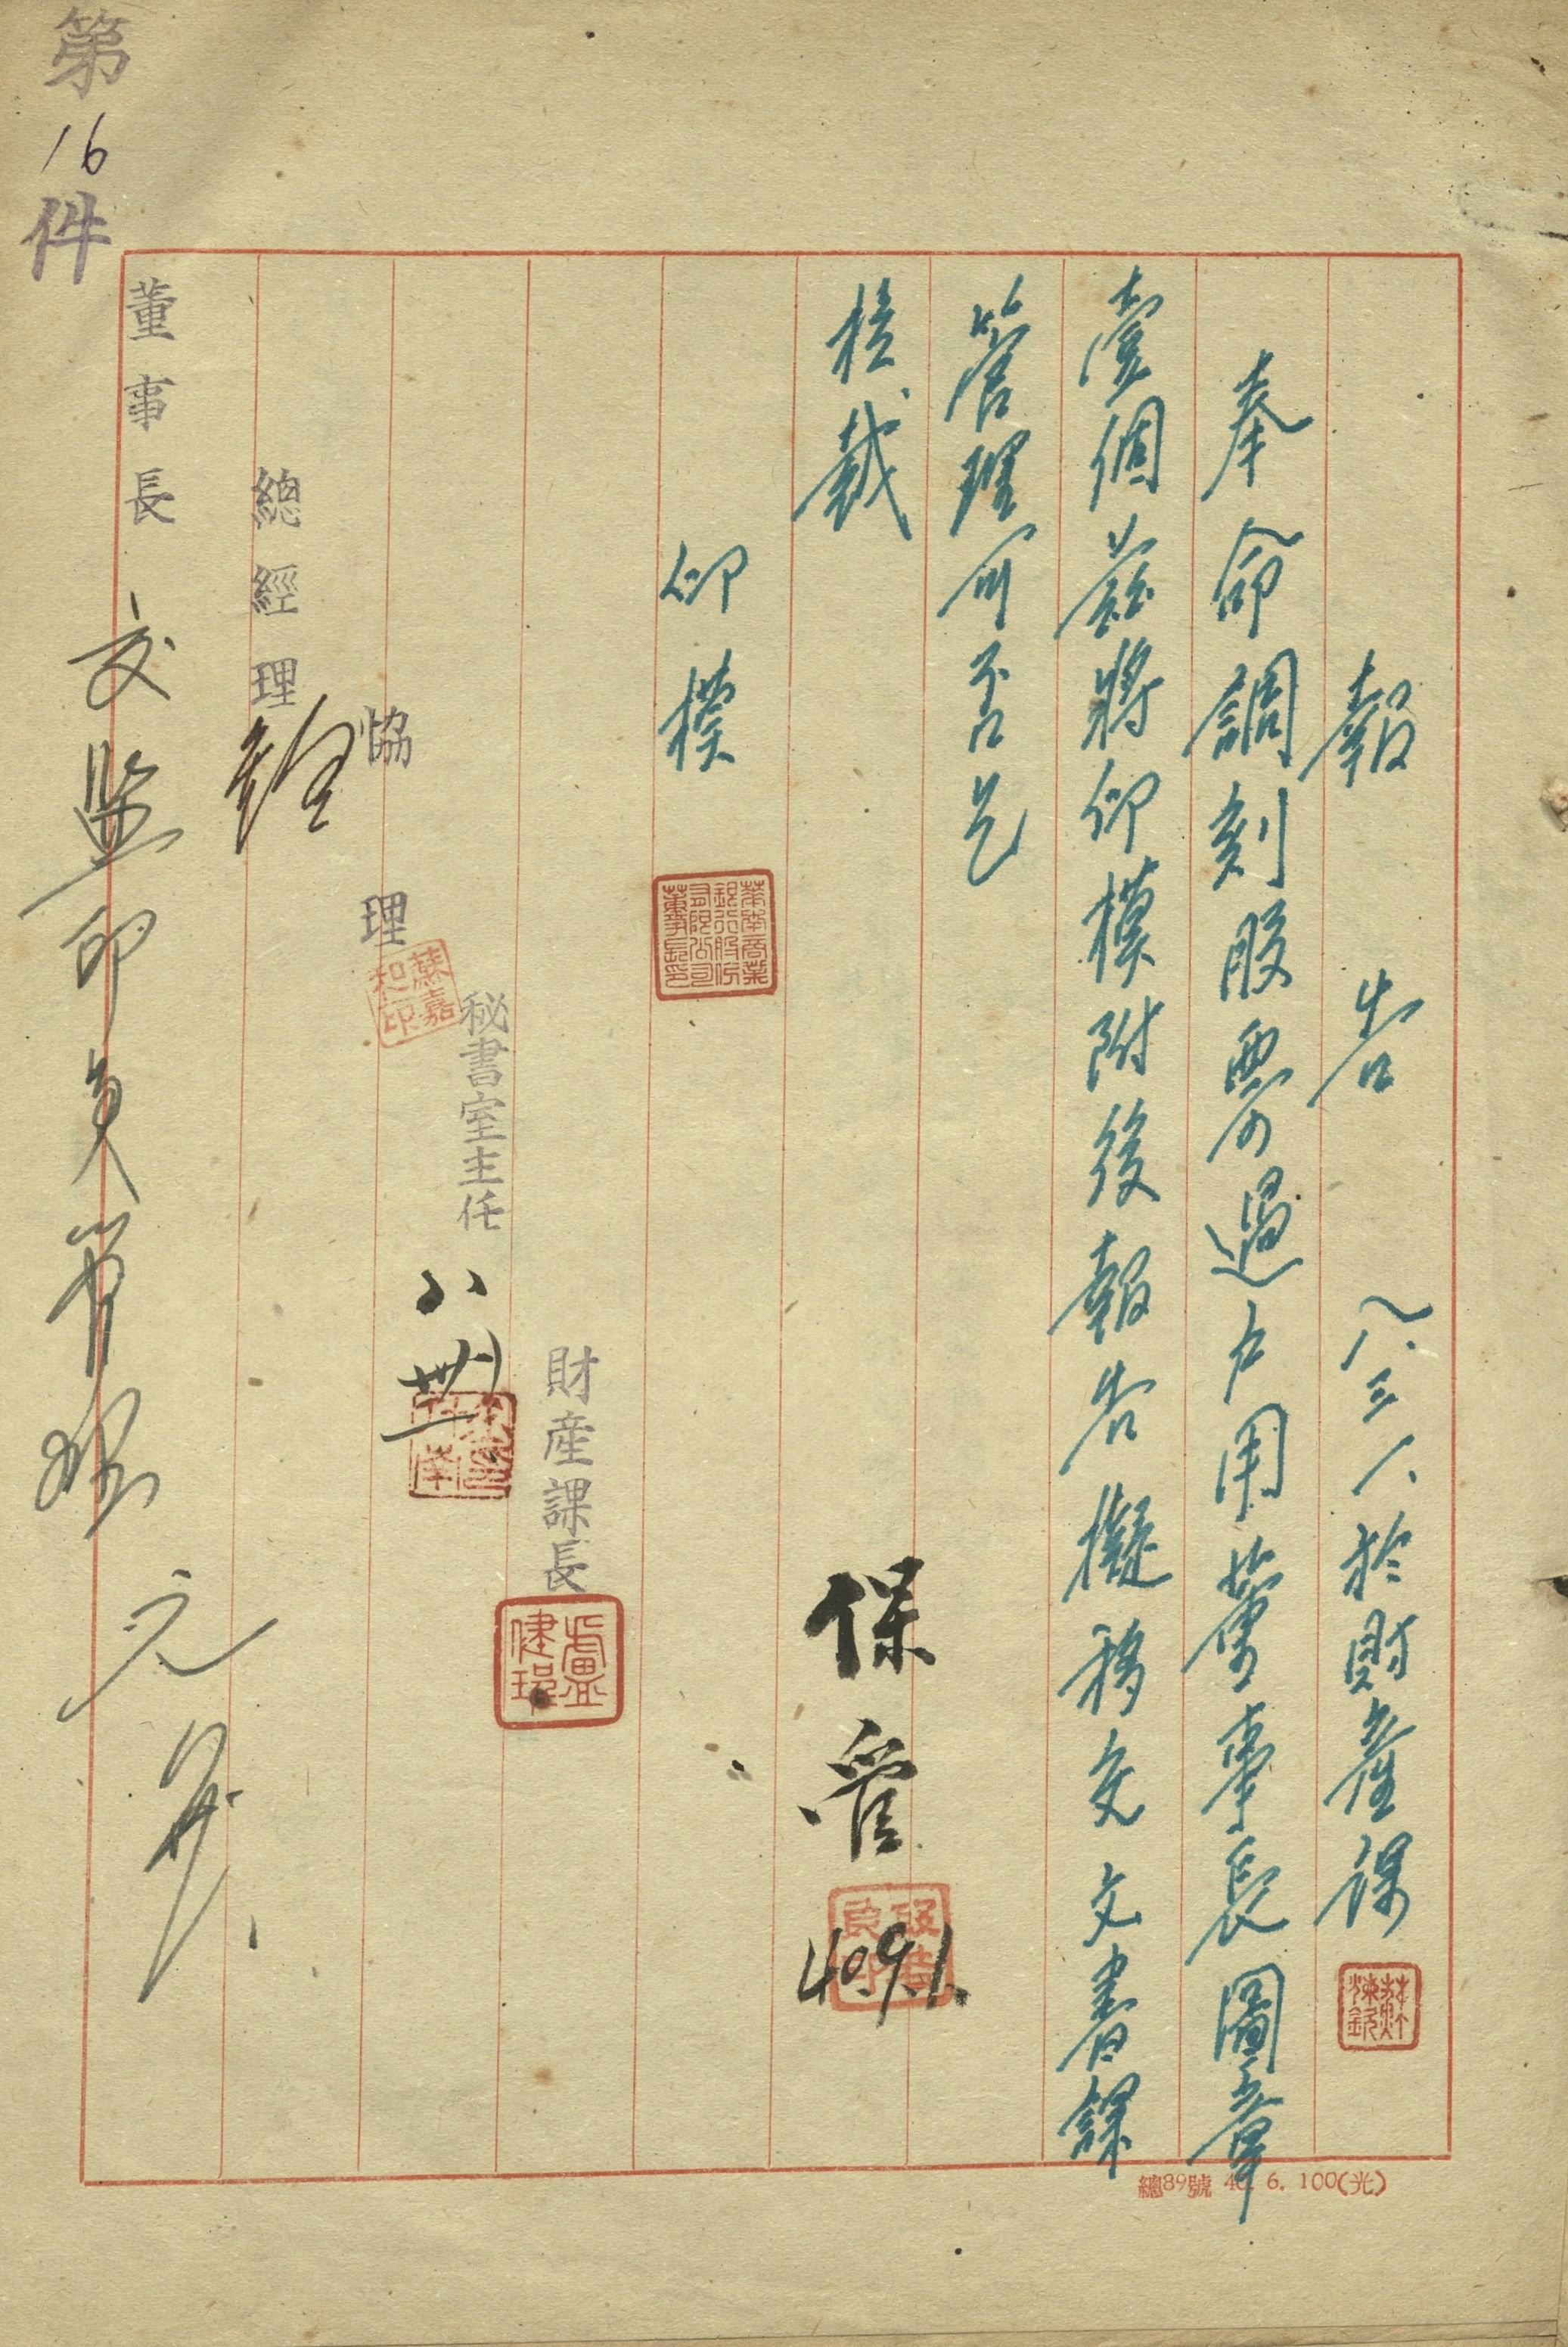 第16件
報告 八.三一.於財產課
奉命調刻股票過戶用董事長圖章
壹個茲將印模附後報告擬移交文書課
管理可否乞
核裁
印模
華南商業銀行股份有限公司董事長印
保管
40.9.1.
財產課長
盧健琨
秘書室主任
八
卅一
協理
蘇嘉和印
總經理
董事長
交監印員管理
總89號 40. 6. 100(光)